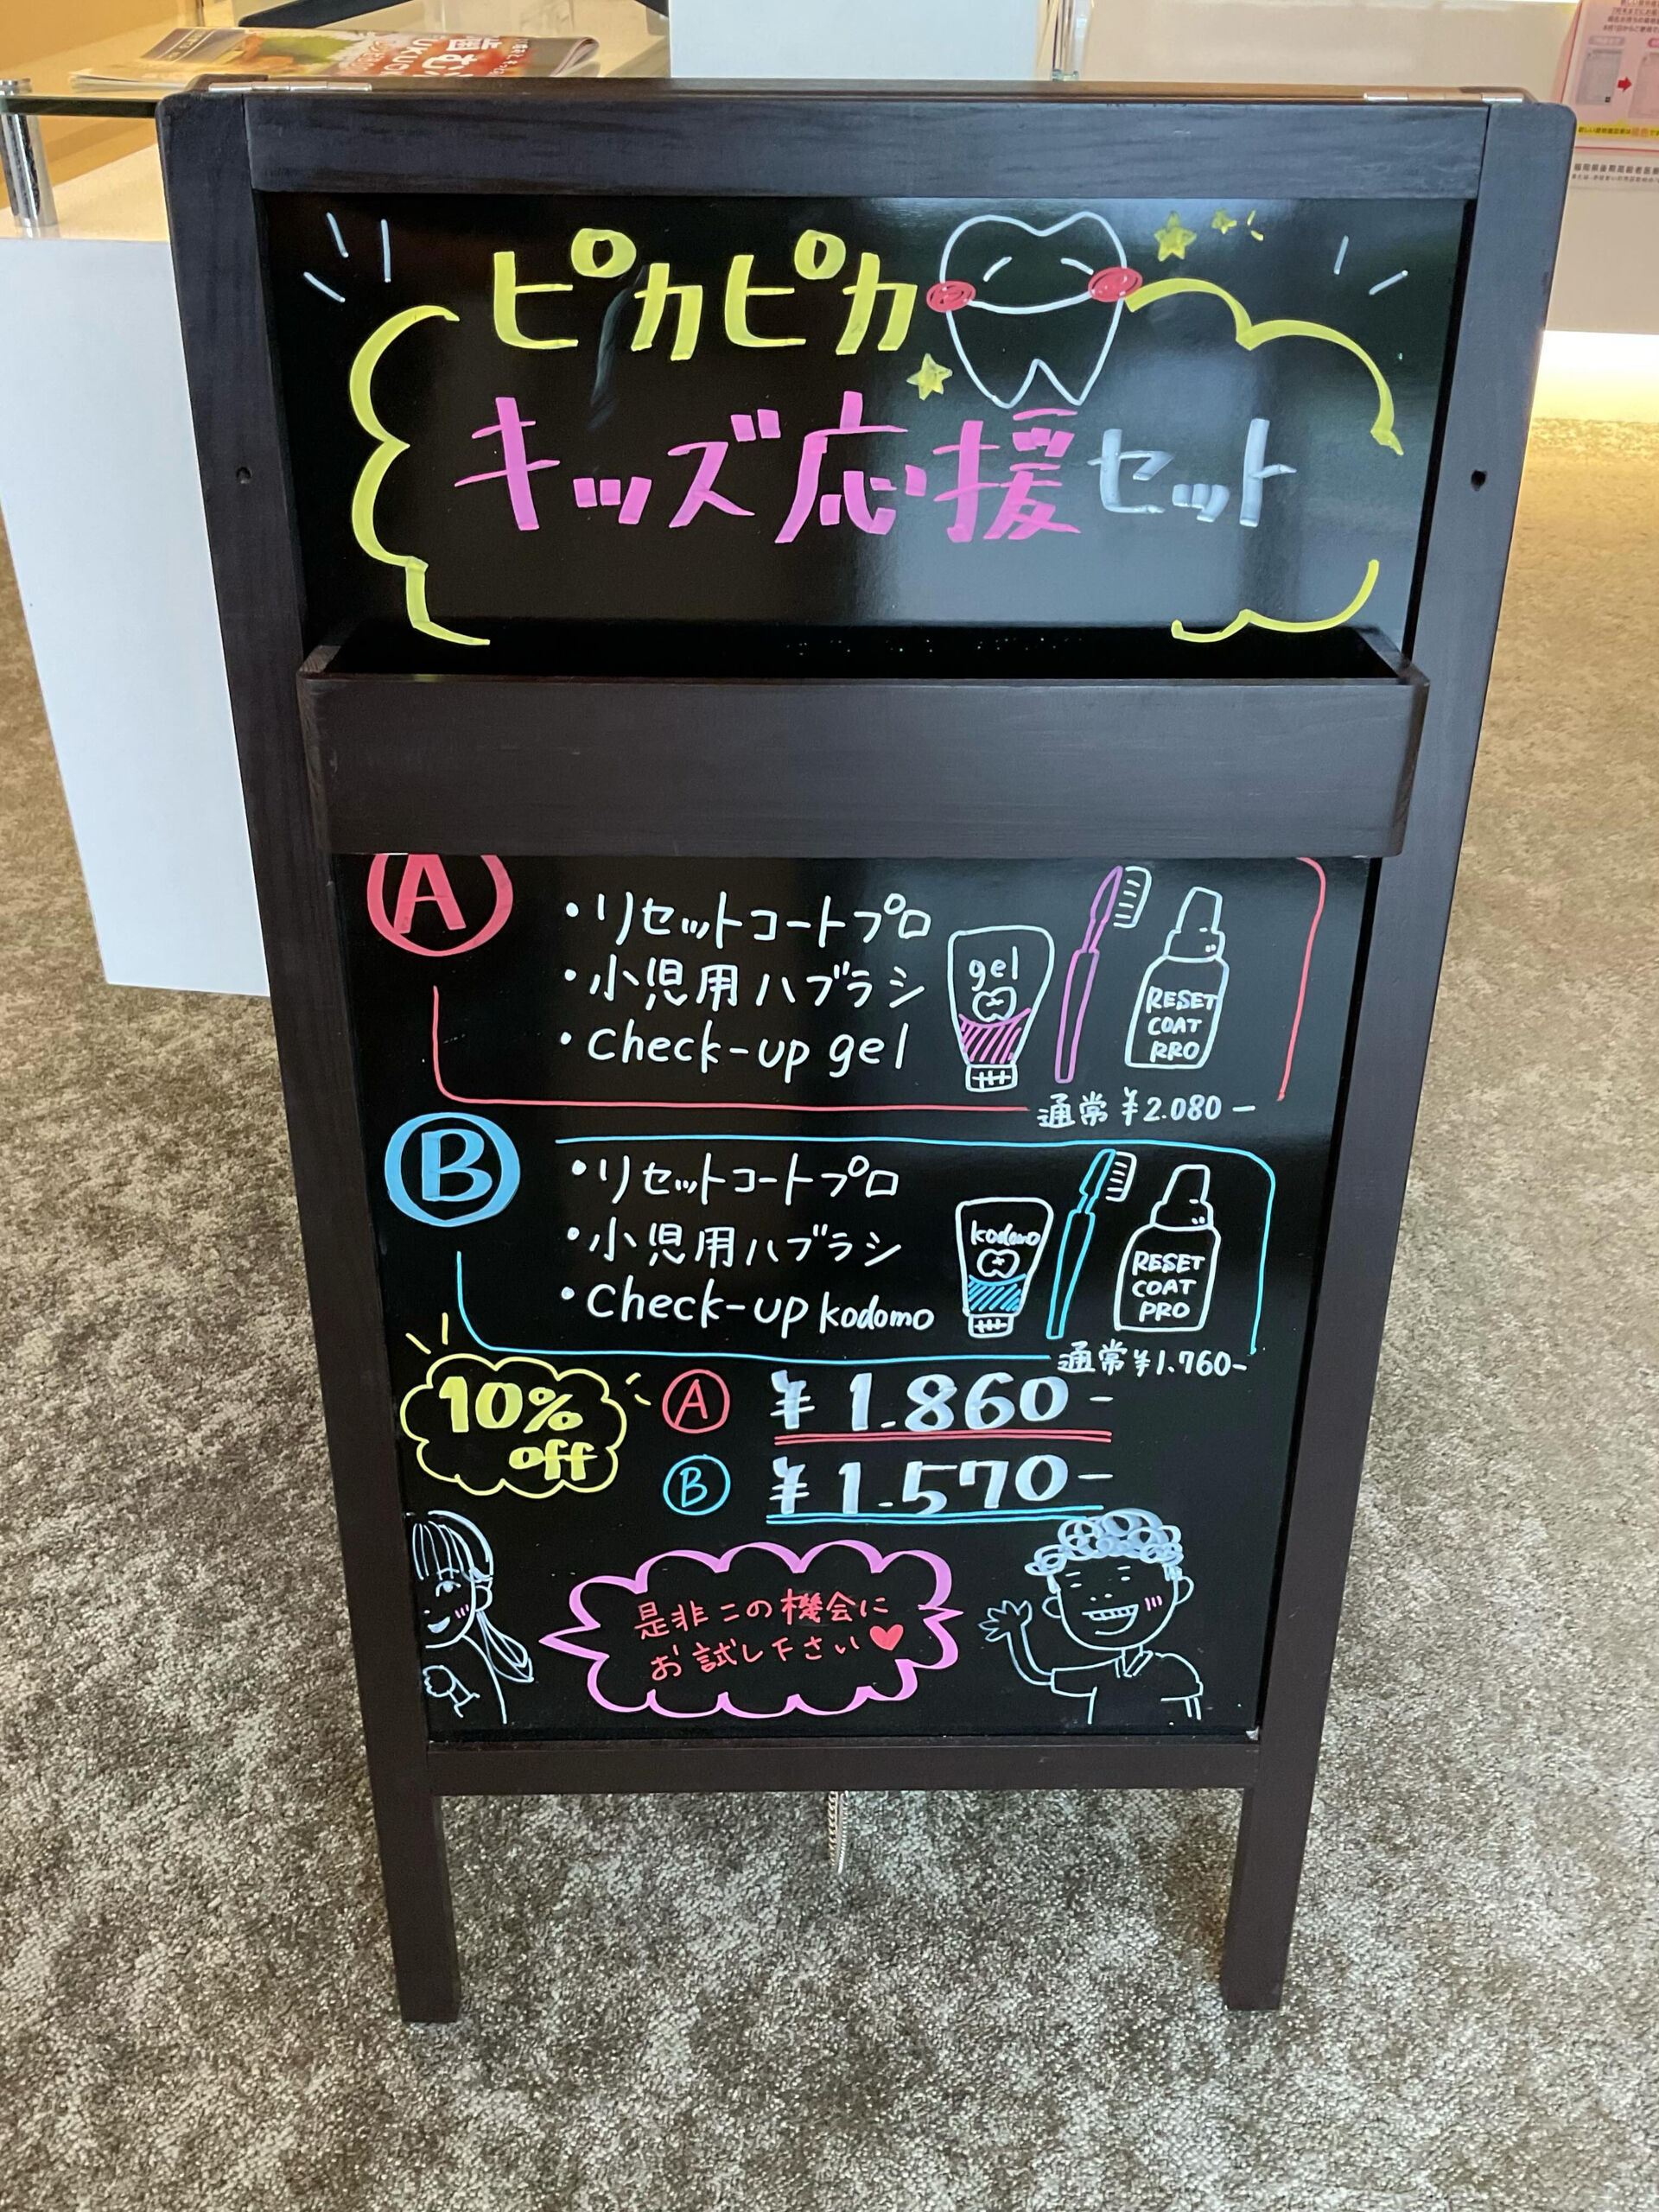 ピカピカ
キッズ応援セット
A
・リセットコートプロ
・小児用ハブラシ
・Check-up gel
gel
RESET
COAT
PRO
通常 ¥2.080-
B
・リセットコートプロ
・小児用ハブラシ
・Check-up kodomo
kodomo
RESET
COAT
PRO
通常 ¥1.760-
10%
off
A ¥1.860-
B ¥1.570-
是非この機会に
お試し下さい♥